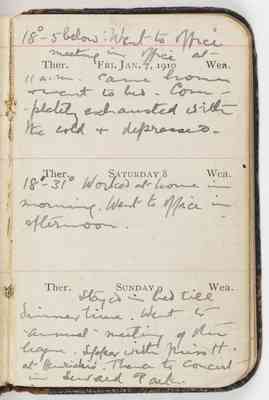 18° - 5 below. Went to office
meeting in office at
Ther. FRI. JAN. 7, 1910 Wea.
11 a.m. Came home
& went to bed. Com-
-pletely exhausted with
the cold & depressed.
Ther. SATURDAY 8 Wea.
18° - 31° Worked at home in
morning. Went to office in
afternoon.
Ther. SUNDAY 9 Wea.
Stayed in bed till
dinner time. Went to
annual meeting of the
league. Supper with Miss H.
at Thence to concert
in Seward Park.